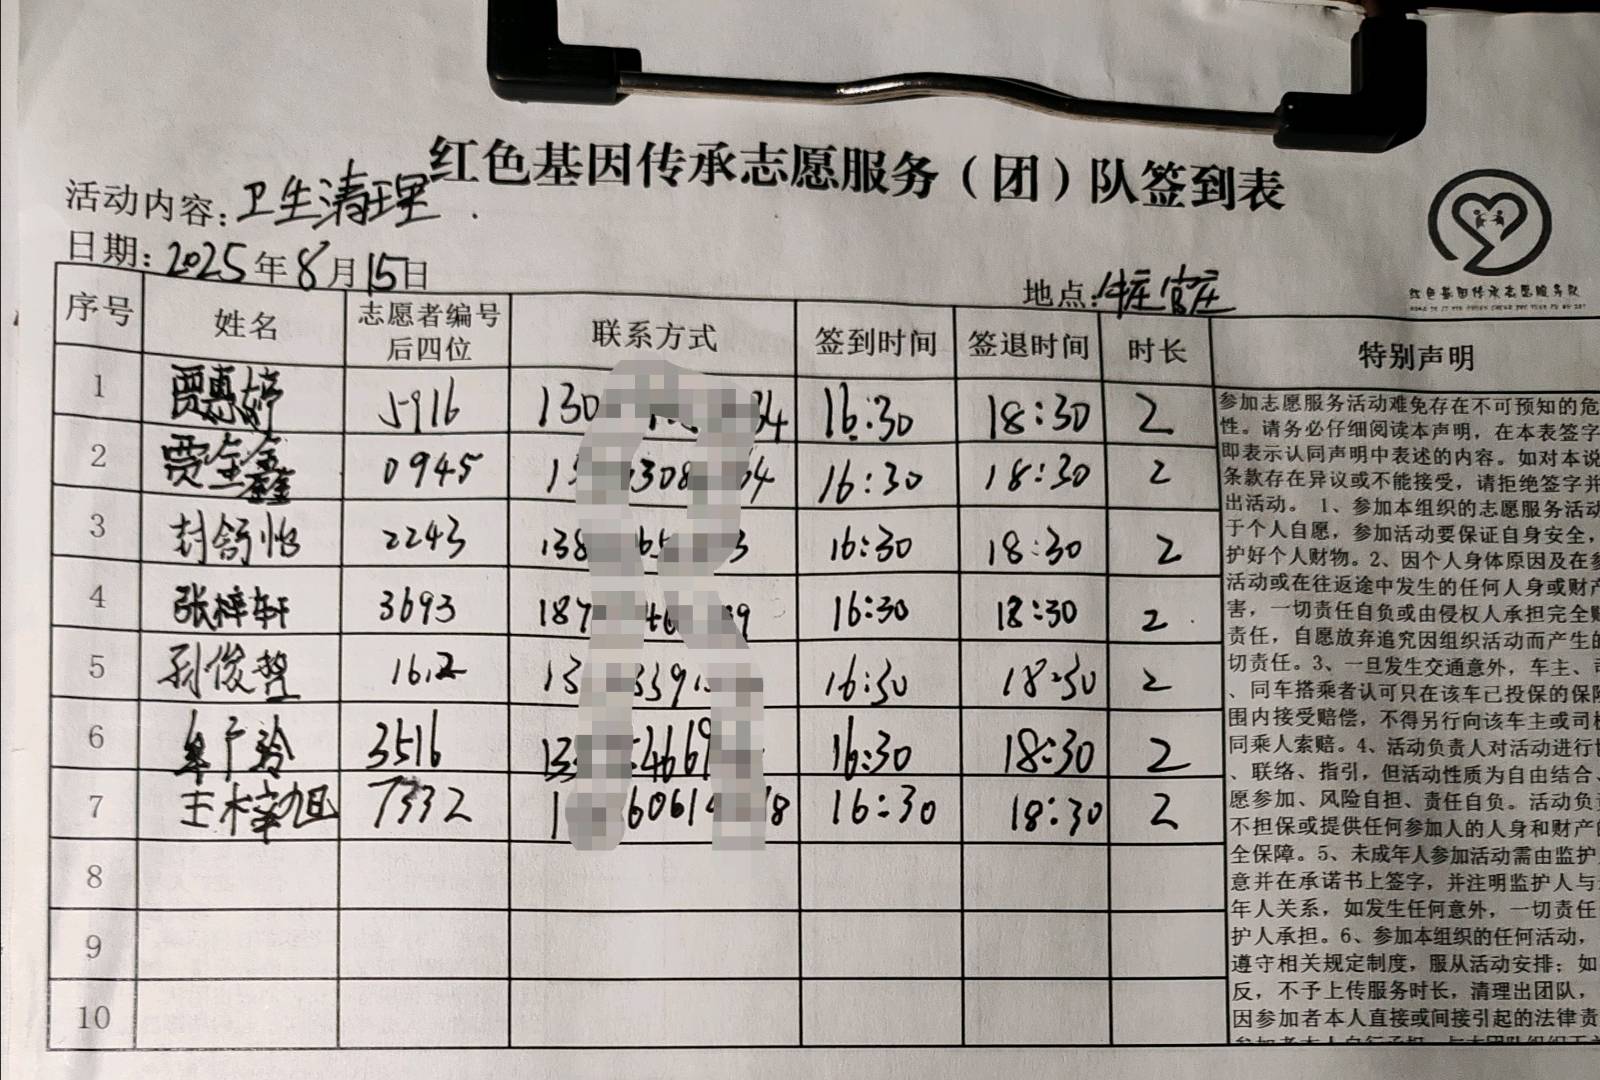 红色基因传承志愿服务（团）队签到表
活动内容：卫生清理
日期：2025年8月15日
地点：牛庄官庄
红色基因传承志愿服务队
序号 姓名 志愿者编号后四位 联系方式 签到时间 签退时间 时长 特别声明
1 贾惠婷 5916 130 34 16:30 18:30 2
2 贾全鑫 0945 1 308 64 16:30 18:30 2
3 封舒怡 2243 138 65 3 16:30 18:30 2
4 张梓轩 3693 187 46 9 16:30 18:30 2
5 孙俊哲 1612 13 339 16:30 18:30 2
6 牟广玲 3516 133 4669 16:30 18:30 2
7 王梓旭 7332 1 6061 8 16:30 18:30 2
8
9
10
参加志愿服务活动难免存在不可预知的危
性。请务必仔细阅读本声明，在本表签字
即表示认同声明中表述的内容。如对本说
条款存在异议或不能接受，请拒绝签字并
出活动。 1、参加本组织的志愿服务活动
于个人自愿，参加活动要保证自身安全，
护好个人财物。2、因个人身体原因及在参
活动或在往返途中发生的任何人身或财产
害，一切责任自负或由侵权人承担完全赔
责任，自愿放弃追究因组织活动而产生的
切责任。3、一旦发生交通意外，车主、司
、同车搭乘者认可只在该车已投保的保险
围内接受赔偿，不得另行向该车主或司机
同乘人索赔。4、活动负责人对活动进行协
、联络、指引，但活动性质为自由结合、
愿参加、风险自担、责任自负。活动负责
不担保或提供任何参加人的人身和财产的
全保障。5、未成年人参加活动需由监护
意并在承诺书上签字，并注明监护人与
年人关系，如发生任何意外，一切责任
护人承担。6、参加本组织的任何活动，
遵守相关规定制度，服从活动安排；如
反，不予上传服务时长，清理出团队，
因参加者本人直接或间接引起的法律责